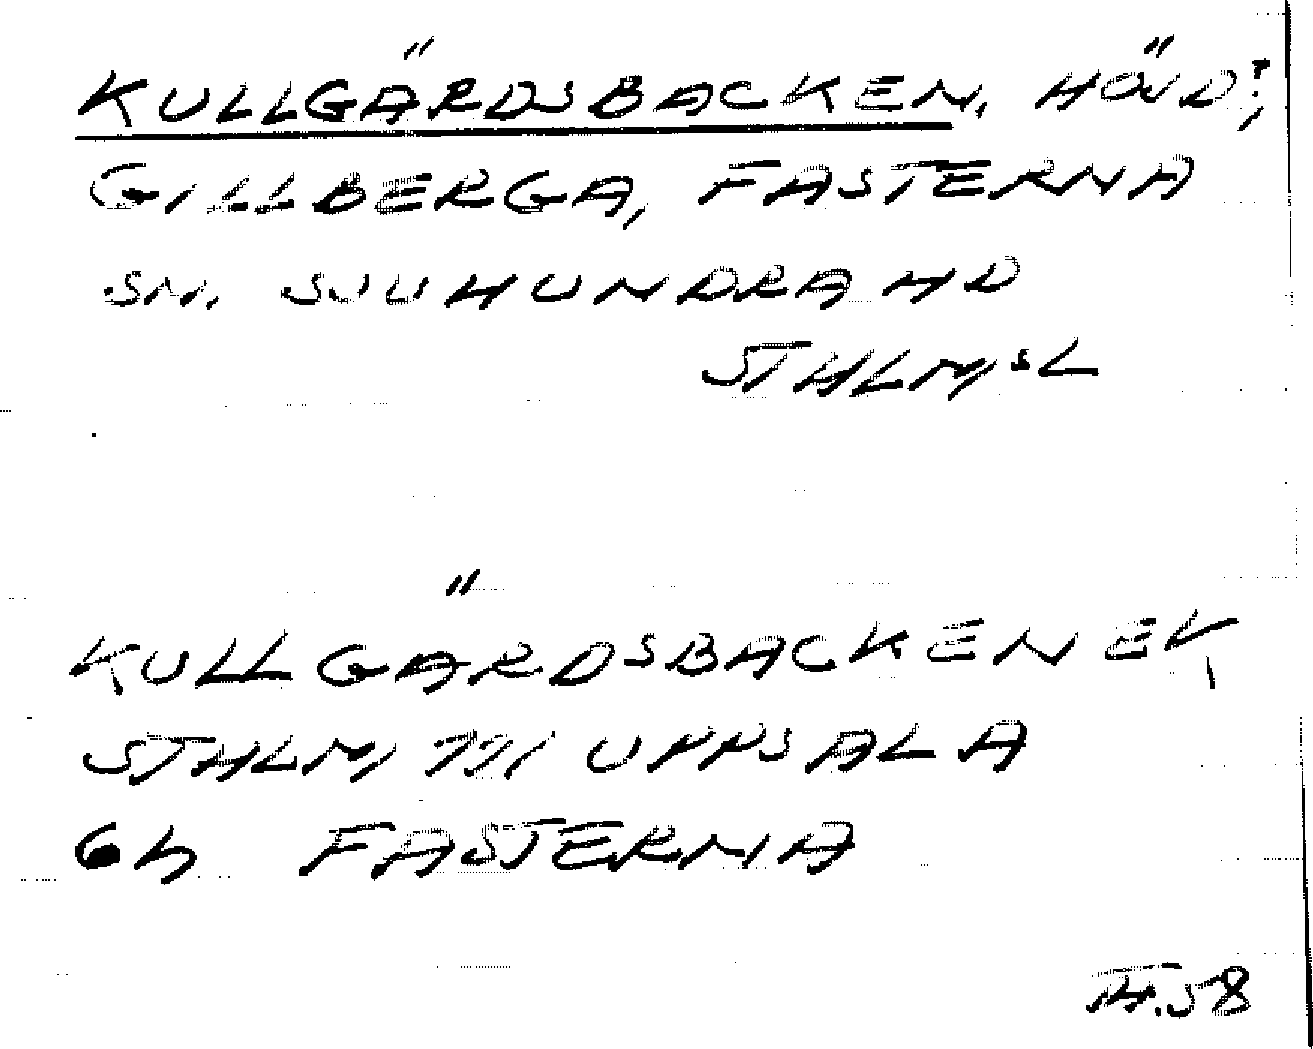 KULLGÄRDSBACKEN, HÖJD?,
GILLBERGA, FASTERNA
SN. SJUHUNDRA HD
STHLMsL
KULLGÄRDSBACKEN EK
STHLM UPPSALA
6h FASTERNA